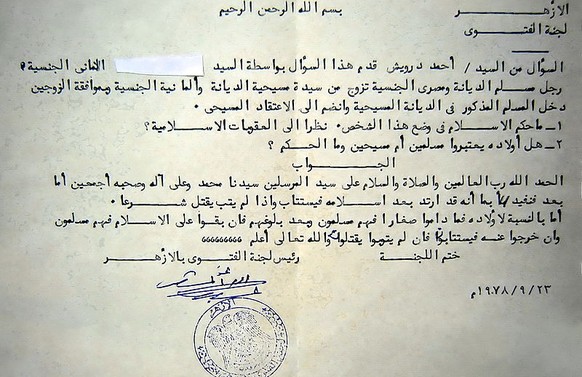 بسم الله الرحمن الرحيم
الأزهر
لجنة الفتوى
السؤال من السيد / أحمد درويش قدم هذا السؤال بواسطة السيد الالمانى الجنسية
رجل مسلم الديانة ومصرى الجنسية تزوج من سيدة مسيحية الديانة وألمانية الجنسية وبموافقة الزوجين
دخل المسلم المذكور فى الديانة المسيحية وانضم الى الاعتقاد المسيحى .
١- ماحكم الاسلام فى وضع هذا الشخص . نظرا الى العقوبات الاسلامية ؟
٢- هل أولاده يعتبروا مسلمين أم مسيحين وما الحكم ؟
الجواب
الحمد الله رب العالمين والصلاة والسلام على سيد المرسلين سيدنا محمد وعلى آله وصحبه أجمعين أما
بعد فنفيد بأنه قد ارتد بعد اسلامه فيستتاب واذا لم يتب يقتل شرعا .
أما بالنسبة لاولاده فما داموا صغارا فهم مسلمون وبعد بلوغهم فان بقوا على الاسلام فهم مسلمون
وان خرجوا عنه فيستتابوا فان لم يتوبوا يقتلوا والله تعالى أعلم
ختم اللجنة رئيس لجنة الفتوى بالأزهر
٢٣ / ٩ / ١٩٧٨م
الأزهر